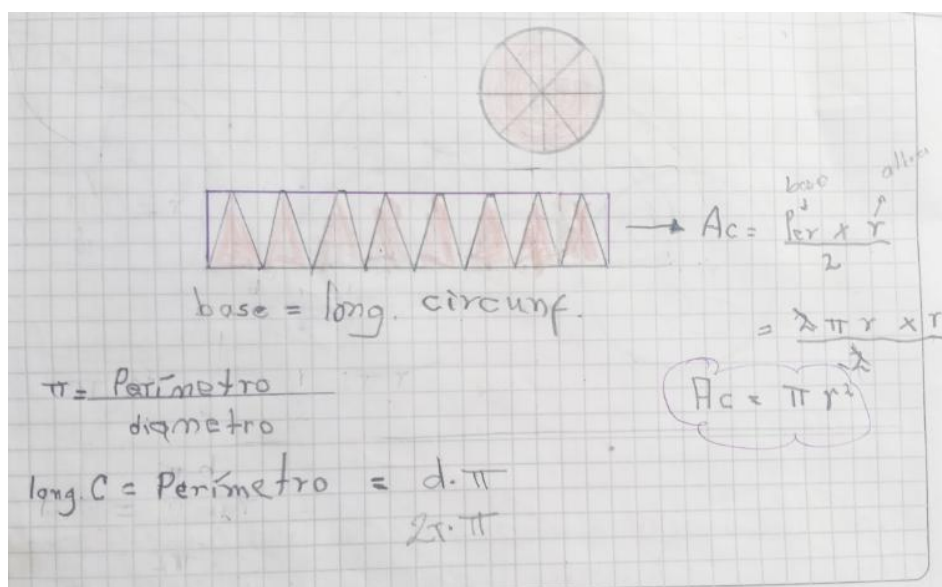 base altura
Ac = Per x r
2
base = long. circunf.
= 2 π r x r
2
Ac = π r²
π = Perímetro
diametro
long. C = Perímetro = d. π
2r. π